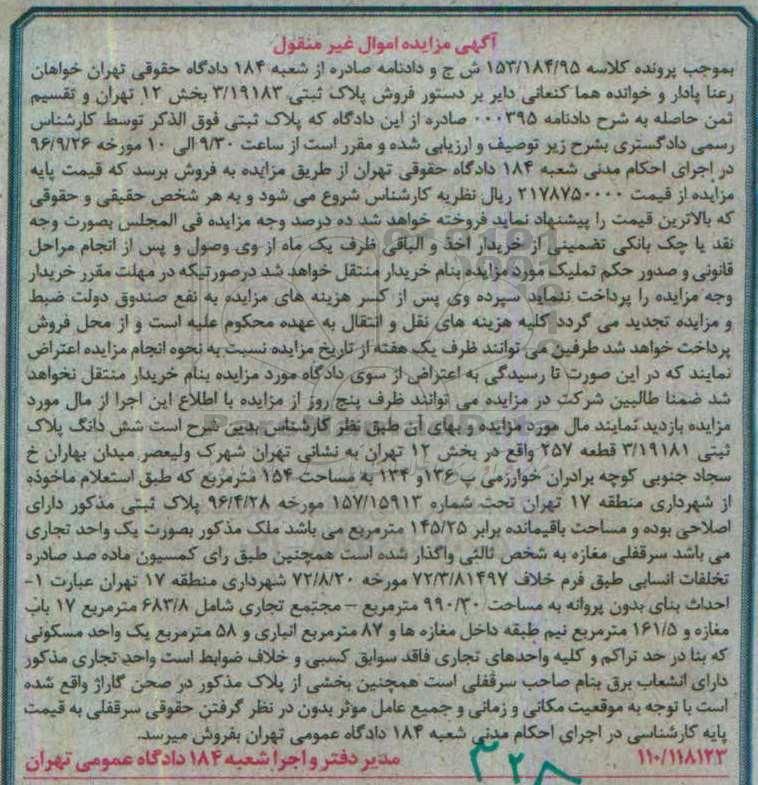 آگهی مزایده اموال غیر منقول
بموجب پرونده کلاسه ۱۵۳/۱۸۴/۹۵ ش ج و دادنامه صادره از شعبه ۱۸۴ دادگاه حقوقی تهران خواهان
رعنا پادار و خوانده هما کنعانی دایر بر دستور فروش پلاک ثبتی ۳/۱۹۱۸۳ بخش ۱۲ تهران و تقسیم
ثمن حاصله به شرح دادنامه ۰۰۰۳۹۵ صادره از این دادگاه که پلاک ثبتی فوق الذکر توسط کارشناس
رسمی دادگستری بشرح زیر توصیف و ارزیابی شده و مقرر است از ساعت ۹/۳۰ الی ۱۰ مورخه ۹۶/۹/۲۶
در اجرای احکام مدنی شعبه ۱۸۴ دادگاه حقوقی تهران از طریق مزایده به فروش برسد که قیمت پایه
مزایده از قیمت ۲۱۷۸۷۵۰۰۰۰ ریال نظریه کارشناس شروع می شود و به هر شخص حقیقی و حقوقی
که بالاترین قیمت را پیشنهاد نماید فروخته خواهد شد ده درصد وجه مزایده فی المجلس بصورت وجه
نقد یا چک بانکی تضمینی از خریدار اخذ و الباقی ظرف یک ماه از وی وصول و پس از انجام مراحل
قانونی و صدور حکم تملیک مورد مزایده بنام خریدار منتقل خواهد شد درصورتیکه در مهلت مقرر خریدار
وجه مزایده را پرداخت ننماید سپرده وی پس از کسر هزینه های مزایده به نفع صندوق دولت ضبط
و مزایده تجدید می گردد کلیه هزینه های نقل و انتقال به عهده محکوم علیه است و از محل فروش
پرداخت خواهد شد طرفین می توانند ظرف یک هفته از تاریخ مزایده نسبت به نحوه انجام مزایده اعتراض
نمایند که در این صورت تا رسیدگی به اعتراض از سوی دادگاه مورد مزایده بنام خریدار منتقل نخواهد
شد ضمنا طالبین شرکت در مزایده می توانند ظرف پنج روز از مزایده با اطلاع این اجرا از مال مورد
مزایده بازدید نمایند مال مورد مزایده و بهای آن طبق نظر کارشناس بدین شرح است شش دانگ پلاک
ثبتی ۳/۱۹۱۸۱ قطعه ۲۵۷ واقع در بخش ۱۲ تهران به نشانی تهران شهرک ولیعصر میدان بهاران خ
سجاد جنوبی کوچه برادران خوارزمی پ ۱۳۶ و ۱۳۴ به مساحت ۱۵۴ مترمربع که طبق استعلام ماخوذه
از شهرداری منطقه ۱۷ تهران تحت شماره ۱۵۷/۱۵۹۱۳ مورخه ۹۶/۴/۲۸ پلاک ثبتی مذکور دارای
اصلاحی بوده و مساحت باقیمانده برابر ۱۴۵/۲۵ مترمربع می باشد ملک مذکور بصورت یک واحد تجاری
می باشد سرقفلی مغازه به شخص ثالثی واگذار شده است همچنین طبق رای کمسیون ماده صد صادره
تخلفات انسابی طبق فرم خلاف ۷۲/۳/۸۱۴۹۷ مورخه ۷۲/۸/۲۰ شهرداری منطقه ۱۷ تهران عبارت ۱-
احداث بنای بدون پروانه به مساحت ۹۹۰/۳۰ مترمربع – مجتمع تجاری شامل ۶۸۳/۸ مترمربع ۱۷ باب
مغازه و ۱۶۱/۵ مترمربع نیم طبقه داخل مغازه ها و ۸۷ مترمربع انباری و ۵۸ مترمربع یک واحد مسکونی
که بنا در حد تراکم و کلیه واحدهای تجاری فاقد سوابق کسبی و خلاف ضوابط است واحد تجاری مذکور
دارای انشعاب برق بنام صاحب سرقفلی است همچنین بخشی از پلاک مذکور در صحن گاراژ واقع شده
است با توجه به موقعیت مکانی و زمانی و جمیع عامل موثر بدون در نظر گرفتن حقوقی سرقفلی به قیمت
پایه کارشناسی در اجرای احکام مدنی شعبه ۱۸۴ دادگاه عمومی تهران بفروش میرسد.
۱۱۰/۱۱۸۱۲۳ مدیر دفتر و اجرا شعبه ۱۸۴ دادگاه عمومی تهران
۳۲۸